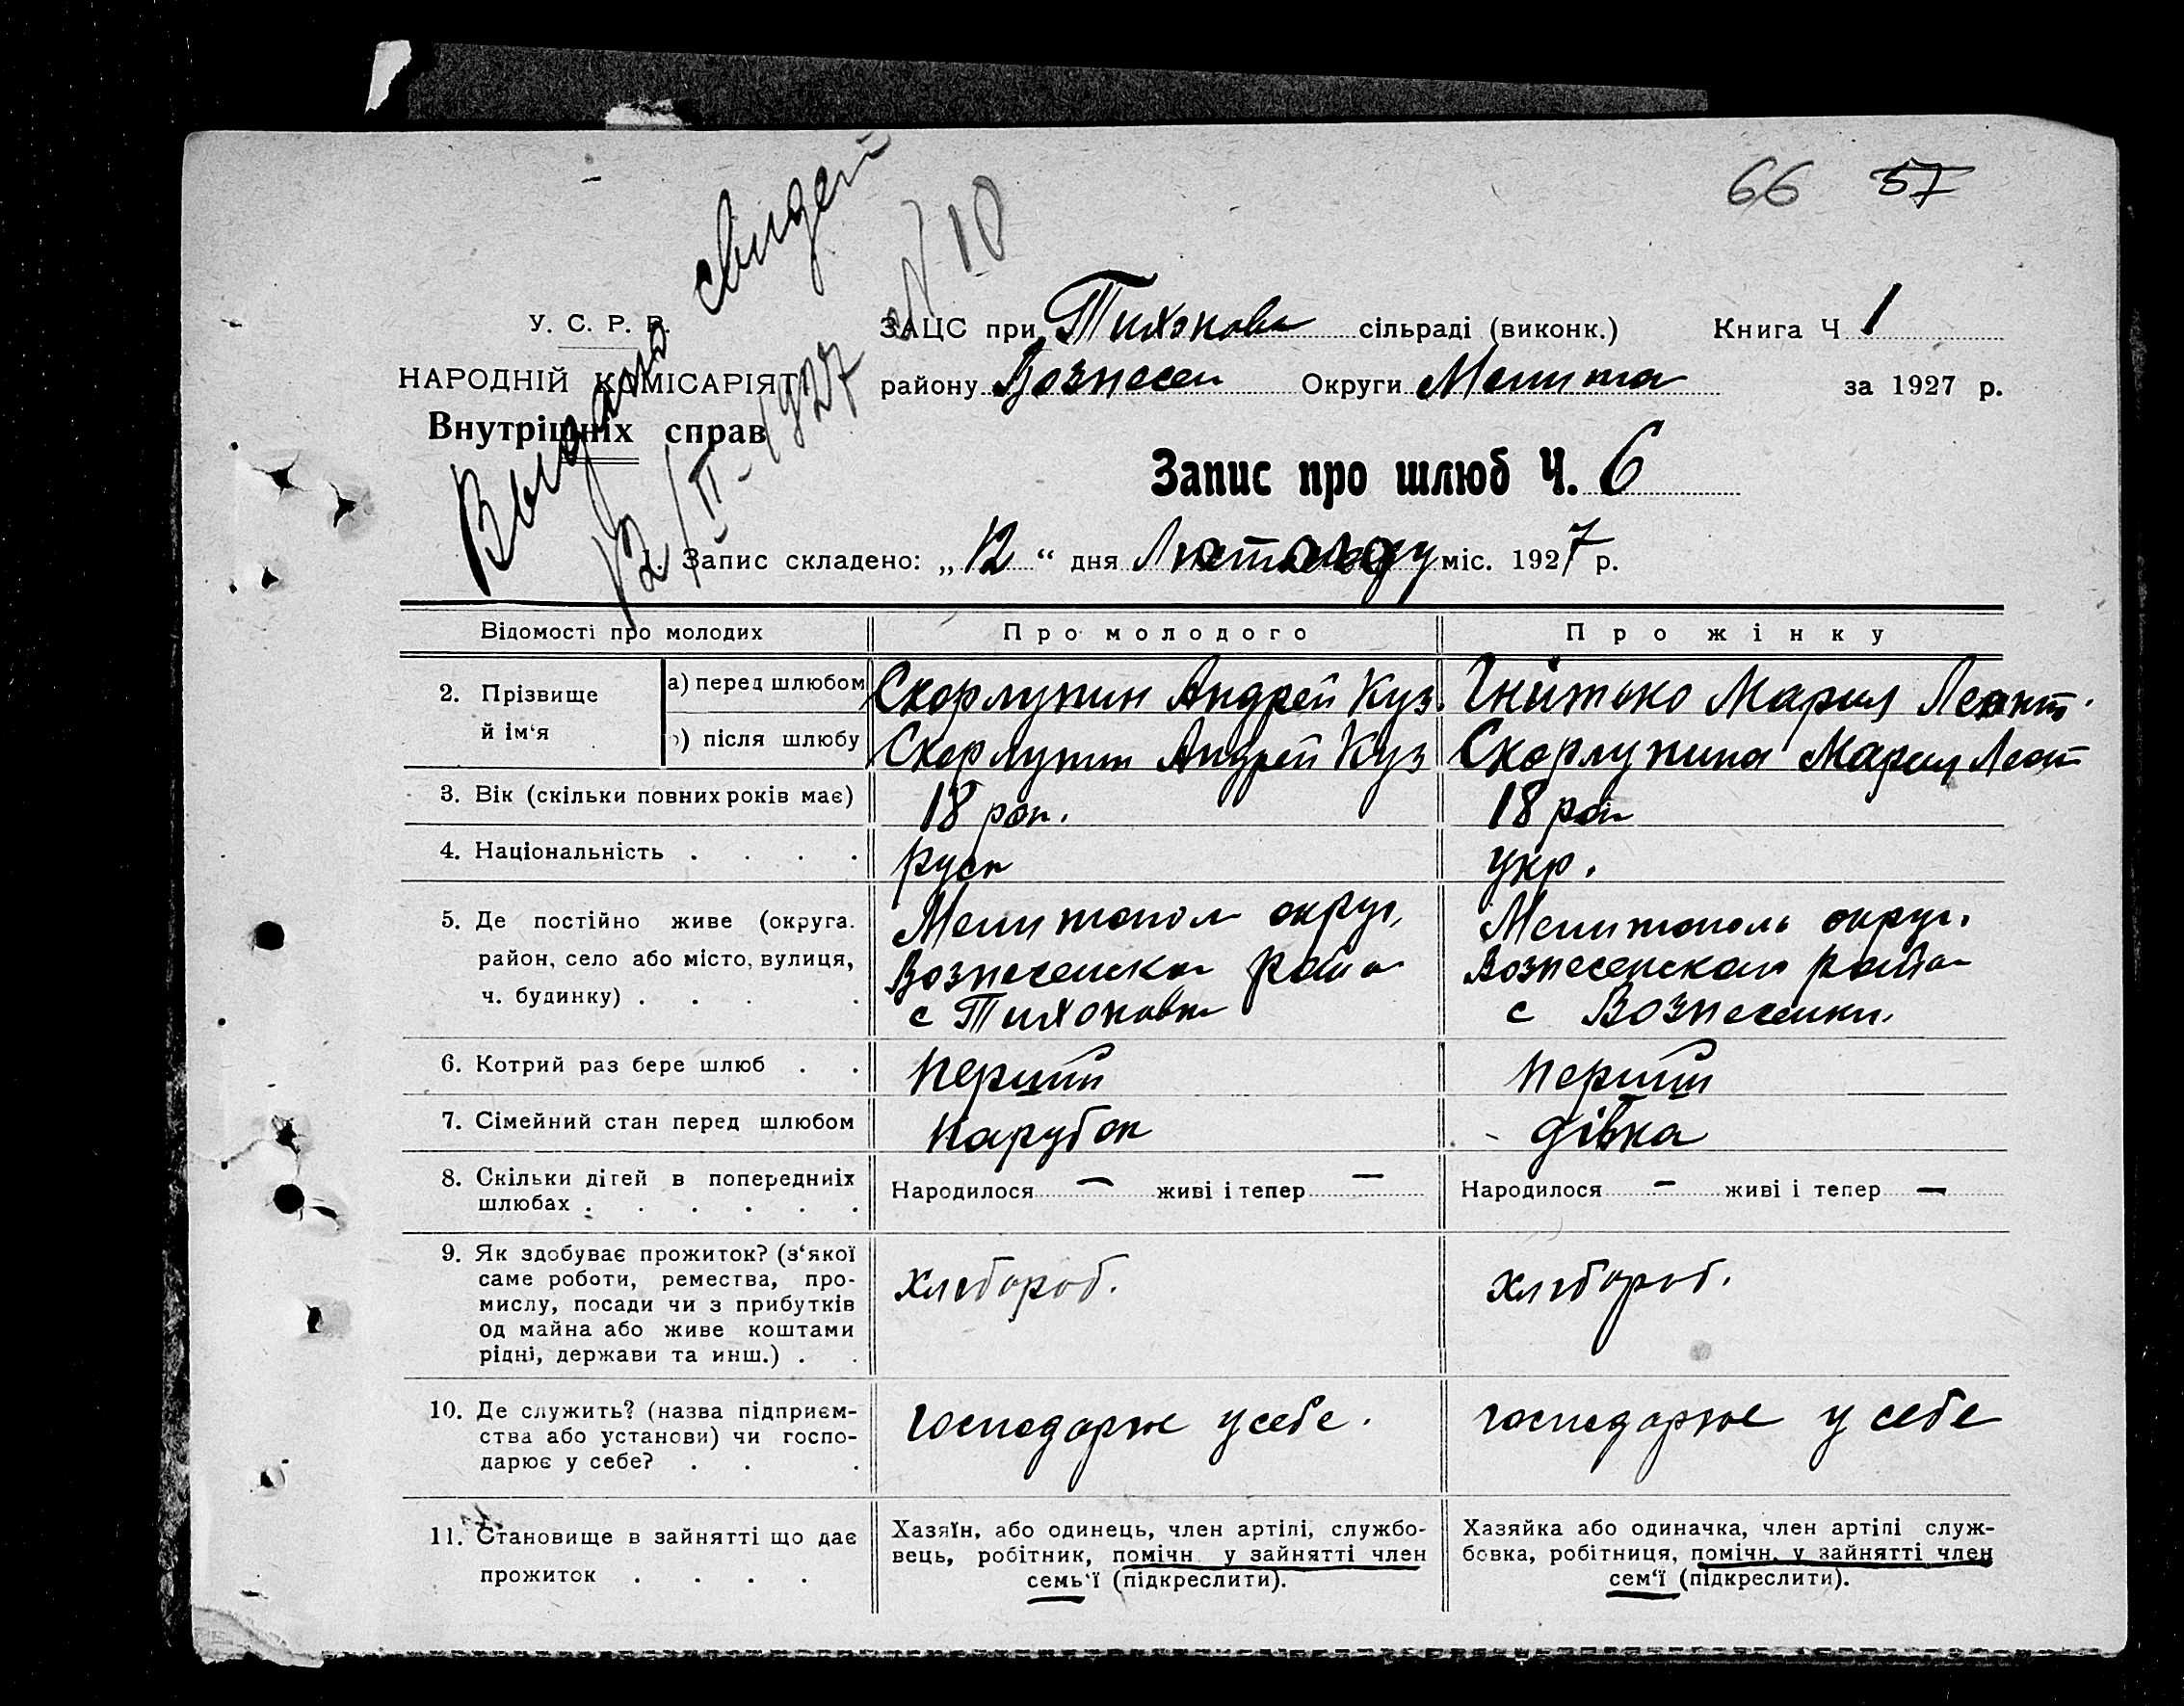 66 57
Выдано свидет
12/II-1927
N 10
У. С. Р. Р.
НАРОДНІЙ КОМІСАРІЯТ
Внутрішніх справ
ЗАЦС при Тихонов сільраді (виконк.) Книга Ч 1
району Вознесен Округи Мелитоп за 1927 р.
Запис про шлюб Ч. 6
1. Запис складено: „12“ дня міс. 1927 р.
Відомості про молодих Про молодого Про жінку
2. Прізвище й ім‘я
а) перед шлюбом Скорлупин Андрей Куз. Гнитько Мария Леонт.
б) після шлюбу Скорлупин Андрей Куз Скорлупина Мария Леонт
3. Вік (скільки повних років має) 18 рок. 18 рок
4. Національність . . . . руск укр.
5. Де постійно живе (округа. район, село або місто, вулиця, ч. будинку) . . . .
Мелитопол округ, Вознесенско район с Тихоновк
Мелитополь округ. Вознесенского район с Вознесенки.
6. Котрий раз бере шлюб . . перший перший
7. Сімейний стан перед шлюбом парубок дівка
8. Скільки дітей в попередниіх шлюбах . . . . . .
Народилося — живі і тепер — Народилося — живі і тепер —
9. Як здобуває прожиток? (з‘якої
саме роботи, ремества, про-
мислу, посади чи з прибутків
од майна або живе коштами
рідні, держави та инш.) . .
хлебороб. хлебороб.
10. Де служить? (назва підприєм-
ства або установи) чи госпо-
дарює у себе? . . .
господарює у себе. господарює у себе
11. Становище в зайнятті що дає
прожиток . . . .
Хазяїн, або одинець, член артілі, службо-
вець, робітник, помічн. у зайнятті член
семь‘ї (підкреслити).
Хазяйка або одиначка, член артілі служ-
бовка, робітниця, помічн. у зайнятті член
сем‘ї (підкреслити).